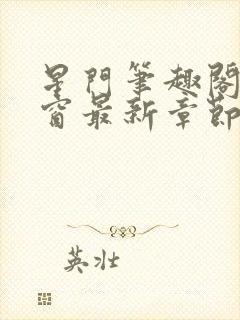 星門筆趣閣
窗最新章節
英壯